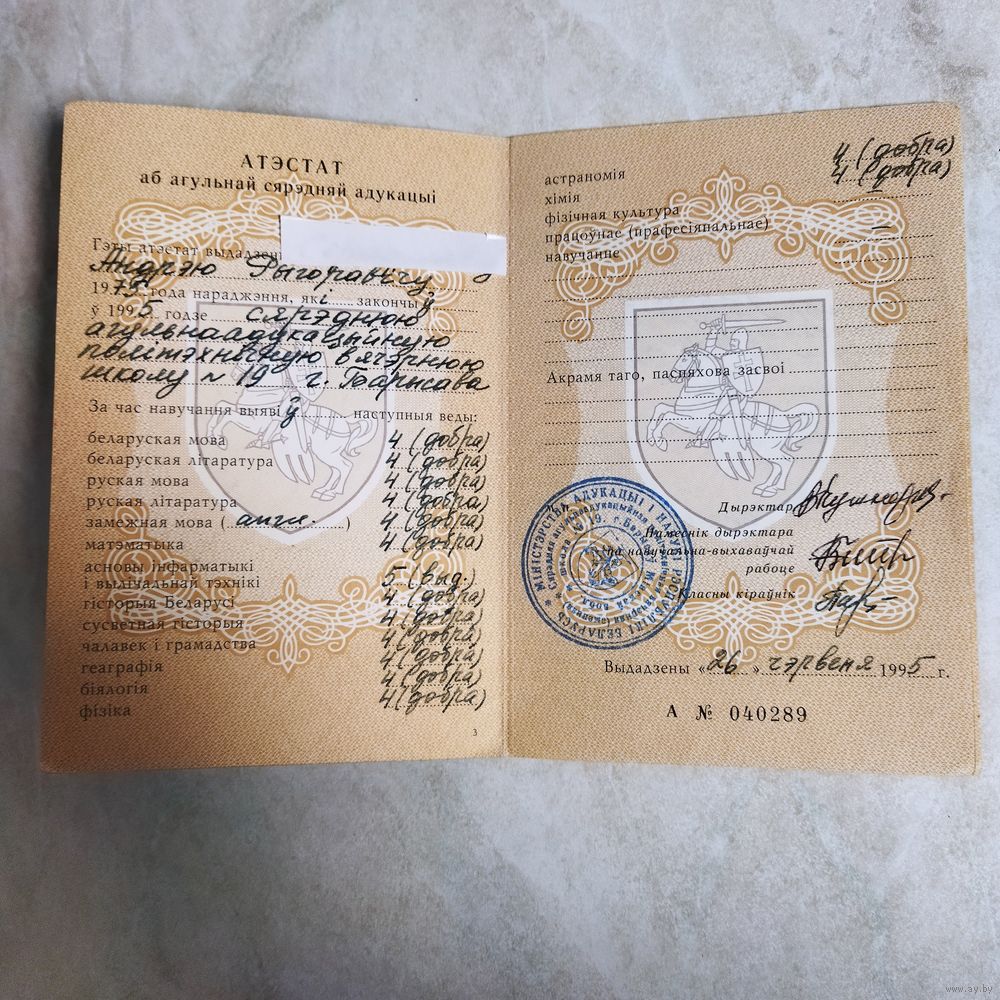 АТЭСТАТ
аб агульнай сярэдняй адукацыі
Гэты атэстат выдадзены
Андрэю Рыгоравічу,
1979 года нараджэння, які закончыў
ў 1995 годзе сярэднюю
агульнаадукацыйную
політэхнічную вячэрнюю
школу № 19 г. Барысава
За час навучання выявіў наступныя веды:
беларуская мова 4 (добра)
беларуская літаратура 4 (добра)
руская мова 4 (добра)
руская літаратура 4 (добра)
замежная мова (англ.) 4 (добра)
матэматыка 4 (добра)
асновы інфарматыкі
і вылічальнай тэхнікі 5 (выд.)
гісторыя Беларусі 4 (добра)
сусветная гісторыя 4 (добра)
чалавек і грамадства 4 (добра)
геаграфія 4 (добра)
біялогія 4 (добра)
фізіка 4 (добра)
3
астраномія 4 (добра)
хімія 4 (добра)
фізічная культура
працоўнае (прафесіянальнае) —
навучанне
Акрамя таго, паспяхова засвоі
Дырэктар
Намеснік дырэктара
па навучальна-выхаваўчай
рабоце
Класны кіраўнік
МІНІСТЭРСТВА АДУКАЦЫІ І НАВУКІ РЭСПУБЛІКІ БЕЛАРУСЬ
Выдадзены «26» чэрвеня 1995 г.
А № 040289
www.ay.by